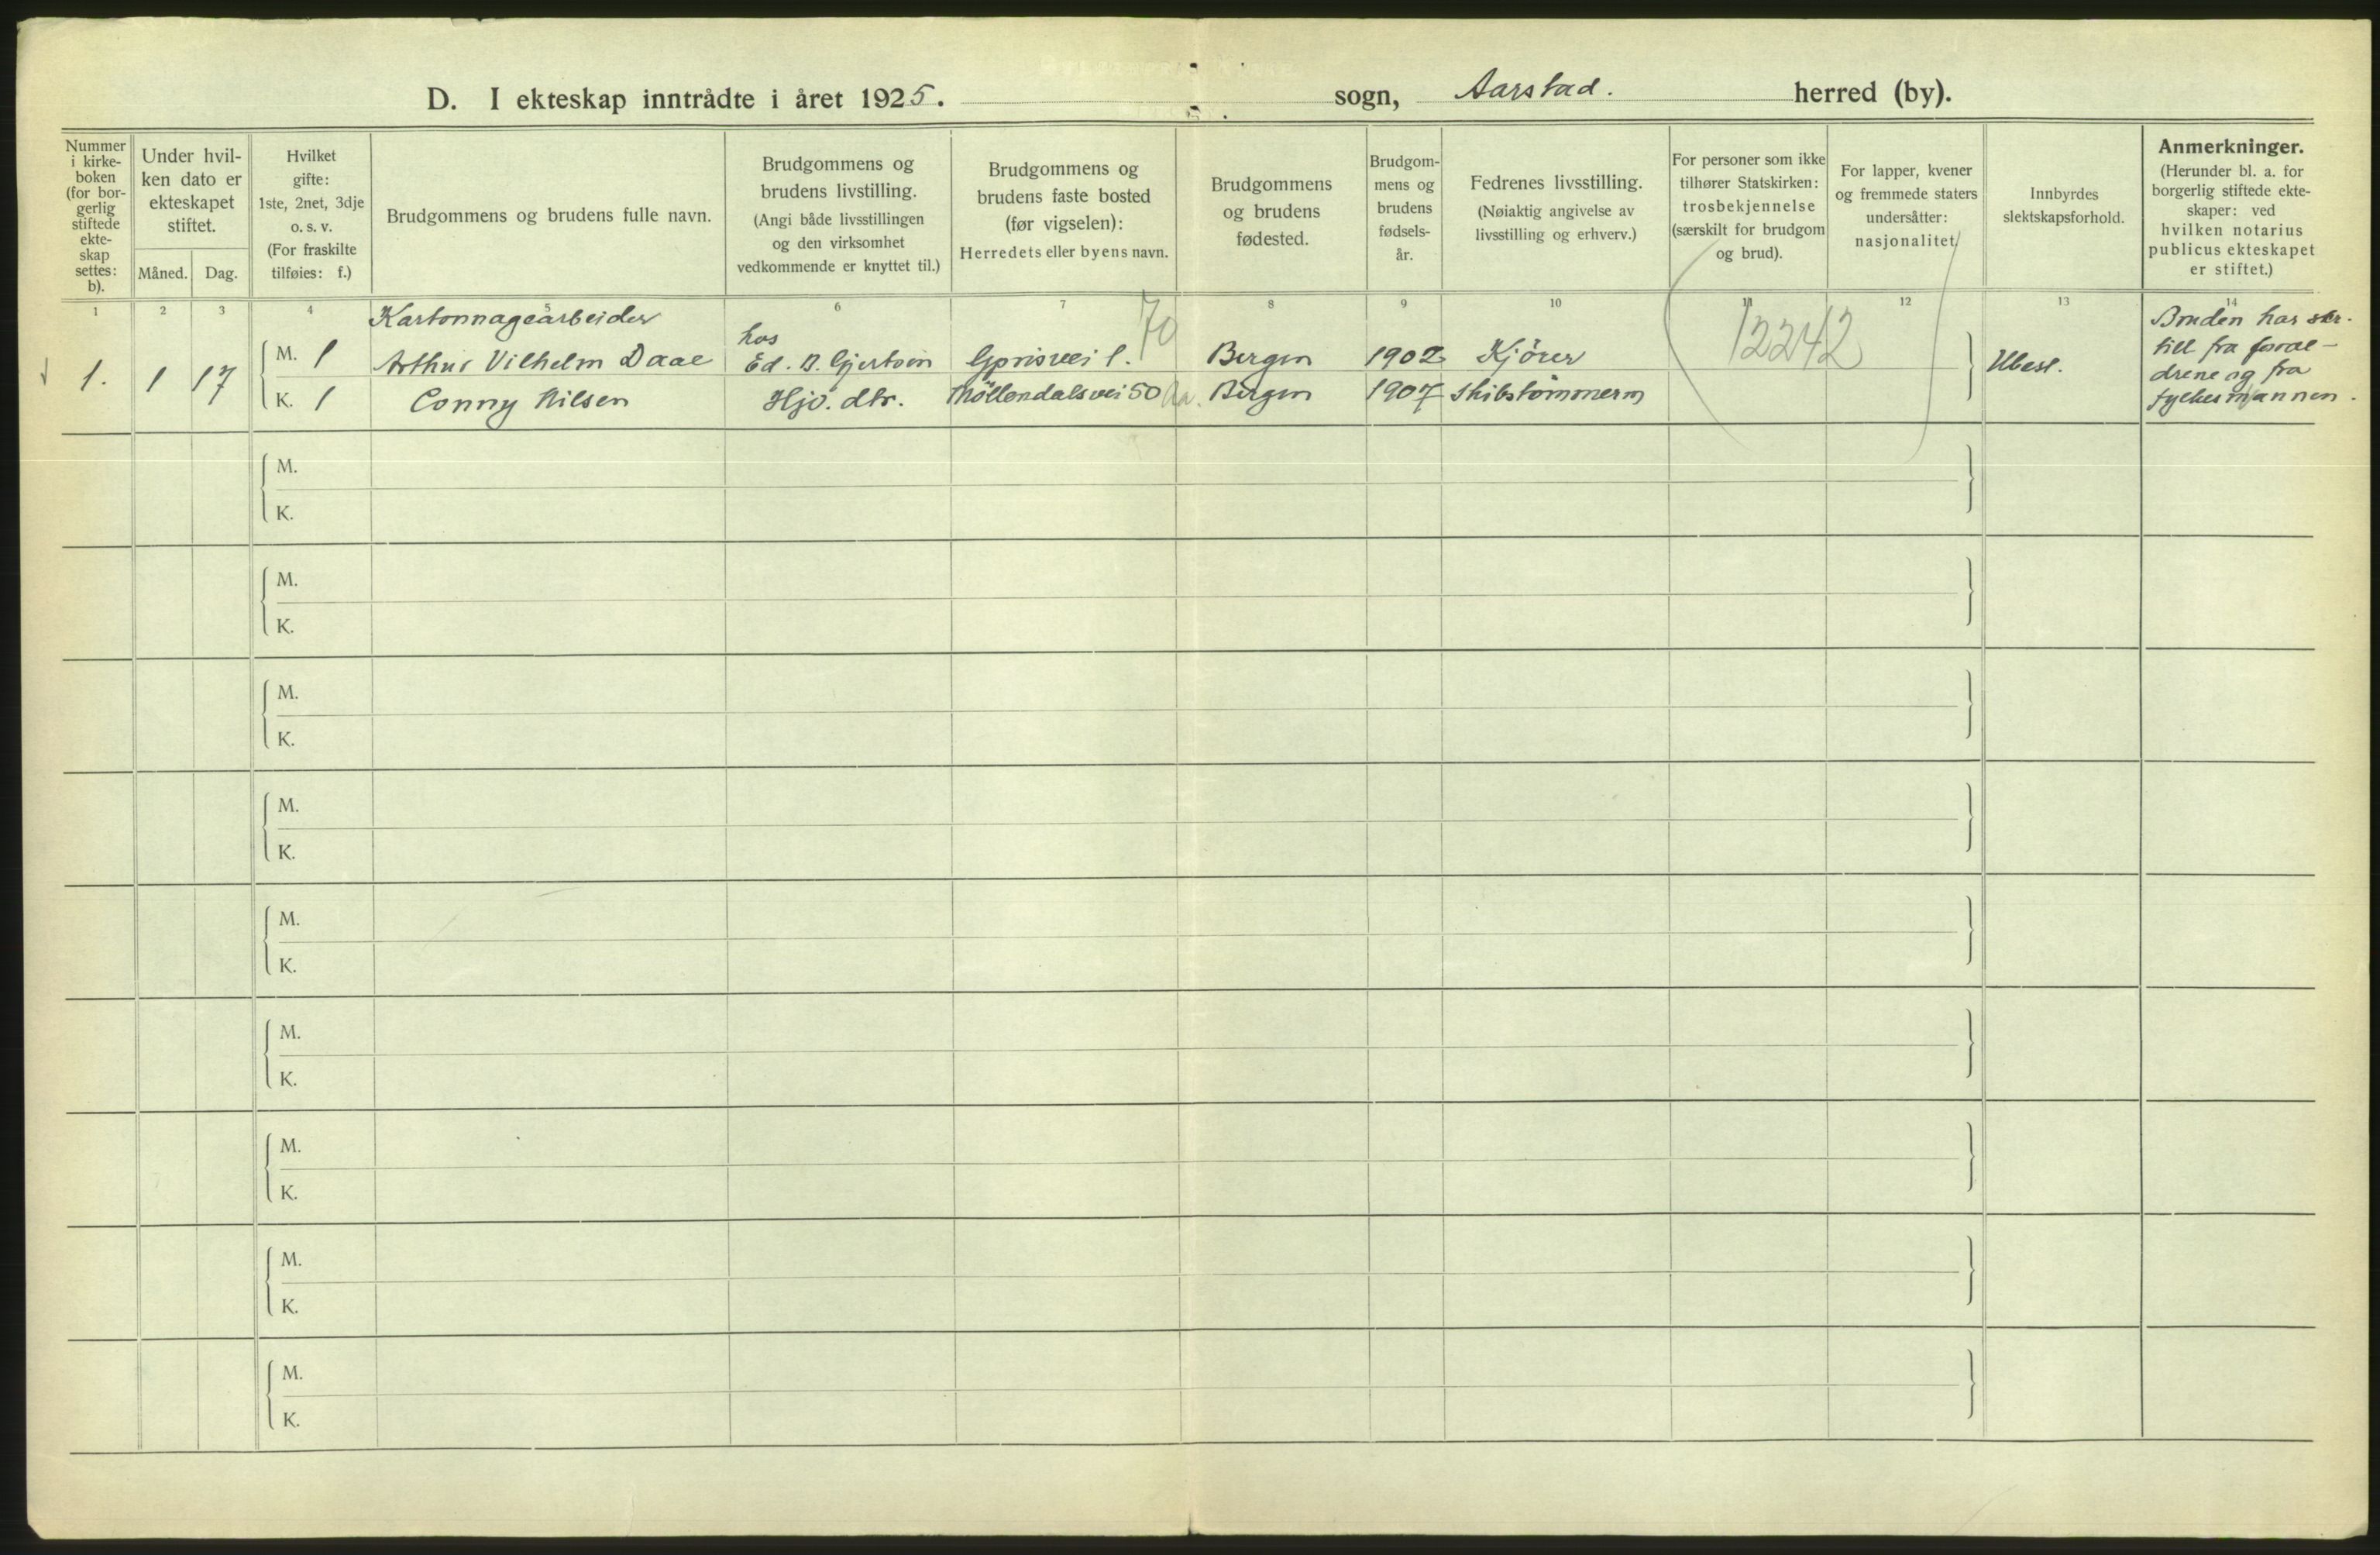 D. I ekteskap inntrådte i året 1925. sogn, Aarstad. herred (by).
Nummer
i kirke-
boken
(for bor-
gerlig
stiftede
ekte-
skap
settes:
b).
Under hvil-
ken dato er
ekteskapet
stiftet.
Måned. Dag.
Hvilket
gifte:
1ste, 2net, 3dje
o. s. v.
(For fraskilte
tilføies: f.)
Brudgommens og brudens fulle navn.
Brudgommens og
brudens livstilling.
(Angi både livsstillingen
og den virksomhet
vedkommende er knyttet til.)
Brudgommens og
brudens faste bosted
(før vigselen):
Herredets eller byens navn.
Brudgommens
og brudens
fødested.
Brudgom-
mens og
brudens
fødsels-
år.
Fedrenes livsstilling.
(Nøiaktig angivelse av
livsstilling og erhverv.)
For personer som ikke
tilhører Statskirken:
trosbekjennelse
(særskilt for brudgom
og brud).
For lapper, kvener
og fremmede staters
undersåtter:
nasjonalitet.
Innbyrdes
slektskapsforhold.
Anmerkninger.
(Herunder bl. a. for
borgerlig stiftede ekte-
skaper: ved
hvilken notarius
publicus ekteskapet
er stiftet.)
1 2 3 4 5 6 7 8 9 10 11 12 13 14
Kartonnagearbeider
hos
70
12242
1. 1 17
M. 1 Arthur Vilhelm Daae Ed. B. Gjertsen 1. Bergen 1902 Kjører
K. 1 Conny Nilsen Hjv. dtr. Möllendalsvei 50 Aa. Bergen 1907 Skibstömmerm
Ubesl.
Bruden har
till fra foræl-
drene og fra
fylkesmannen.
M.
K.
M.
K.
M.
K.
M.
K.
M.
K.
M.
K.
M.
K.
M.
K.
M.
K.